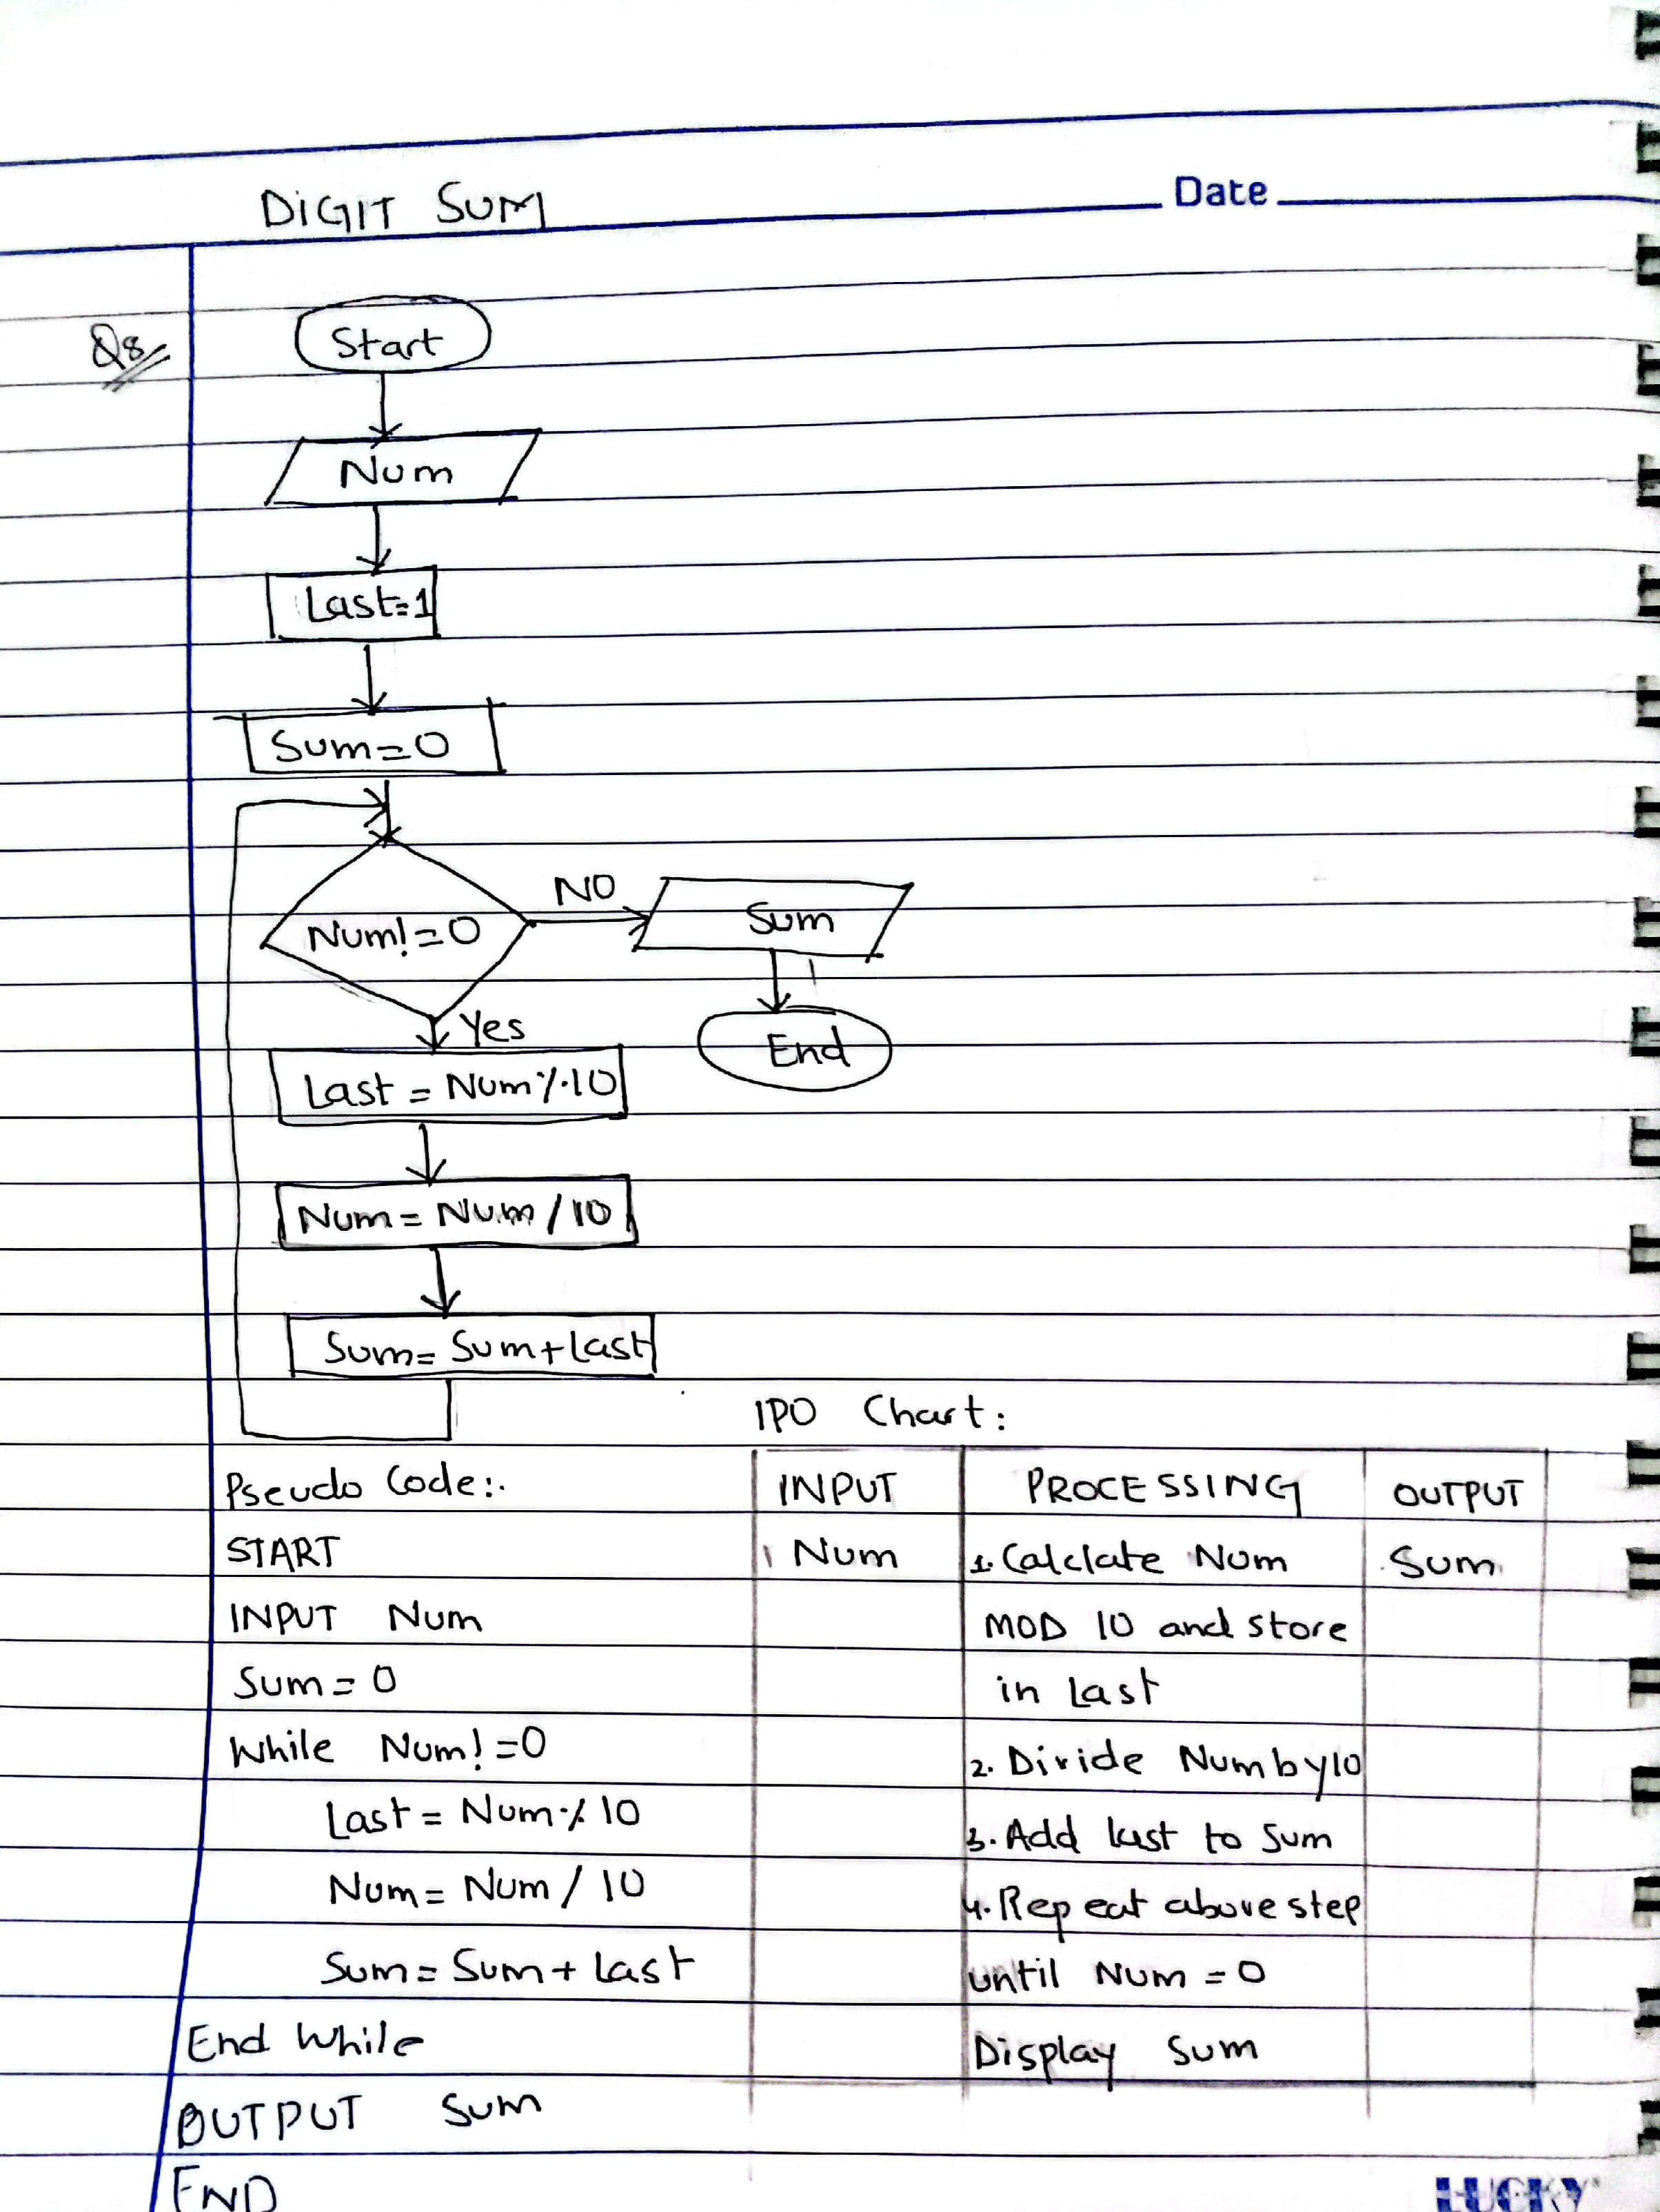 DIGIT SUM
Date
Q8
Start
Num
Last=1
Sum=0
Num!=0
NO
Sum
End
Yes
Last = Num%10
Num = Num / 10
Sum= Sum+Last
Pseudo Code:.
START
INPUT Num
Sum = 0
While Num!=0
Last = Num % 10
Num = Num / 10
Sum = Sum + Last
End While
OUTPUT Sum
END
IPO Chart:
INPUT PROCESSING OUTPUT
Num 1. Calclate Num Sum
MOD 10 and store
in Last
2. Divide Num by 10
3. Add last to Sum
4. Repeat above step
until Num = 0
Display Sum
LUCKY